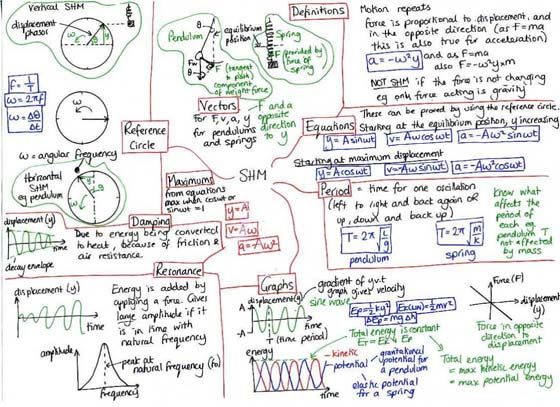 Vertical SHM
displacement
phasor
ω
θ
y
f = 1/T
ω = 2πf
ω = Δθ/Δt
ω
ω = angular frequency
Horizontal
SHM
eg pendulum
Reference
Circle
Pendulum
θ
equilibrium
position
Spring
F (provided by
force of
spring)
F
(tangent
to path)
component
of weight force
Vectors
for F, v, a, y
for pendulums
and springs
F and a
opposite
direction
to y
Definitions
Motion repeats
Force is proportional to displacement, and
in the opposite direction (as F=ma
this is also true for acceleration)
a = -ω²y and as F=ma
also F = -ω²y×m
NOT SHM if the force is not changing
eg only force acting is gravity
Equations
These can be proved using the reference circle.
Starting at the equilibrium position, y increasing
y = A sinωt v = Aωcosωt a = -Aω²sinωt
Starting at maximum displacement
y = Acosωt v = -Aωsinωt a = -Aω²cosωt
SHM
Maximums
from equations
max when cosωt or
sinωt = 1
y = A
v = Aω
a = Aω²
Period = time for one oscillation
(left to right and back again or
up, down and back up)
T = 2π√(L/g)
pendulum
T = 2π√(m/k)
spring
Know what
affects the
period of
each eg
pendulum T
not affected
by mass
Damping
Due to energy being converted
to heat, because of friction &
air resistance.
displacement (y)
time
decay envelope
Resonance
displacement (y)
time
Energy is added by
applying a force. Gives
large amplitude if it
is in time with
natural frequency
amplitude
peak at
natural frequency (f₀)
frequency
Graphs
gradient of y v. t
graph gives velocity
displacement(y)
sine wave
A
-A
T (time period)
time
Ep=½ky² Ek(LIN)=½mv²
ΔEp = mgΔh
Total energy is constant
ET = Ek + Ep
energy
time
kinetic
potential
gravitational
potential for
a pendulum
elastic potential
for a spring
Force (F)
displacement
(y)
Force in opposite
direction to
displacement
Total energy
= max kinetic energy
= max potential energy